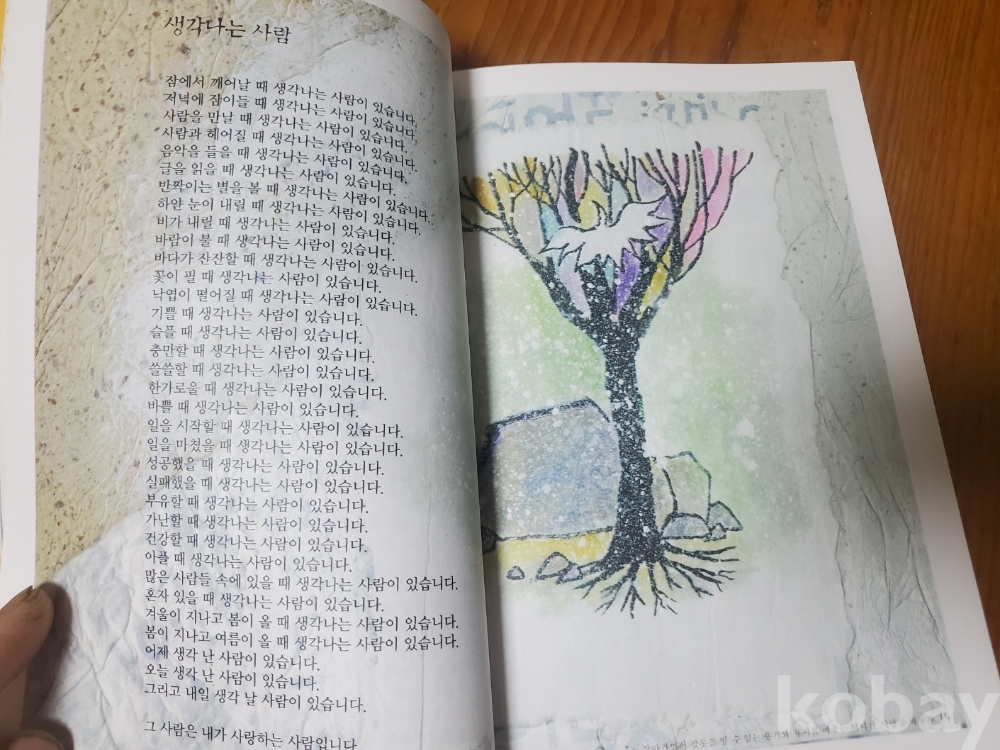 생각나는 사람
잠에서 깨어날 때 생각나는 사람이 있습니다.
저녁에 잠이들 때 생각나는 사람이 있습니다.
사람을 만날 때 생각나는 사람이 있습니다.
사람과 헤어질 때 생각나는 사람이 있습니다.
음악을 들을 때 생각나는 사람이 있습니다.
글을 읽을 때 생각나는 사람이 있습니다.
반짝이는 별을 볼 때 생각나는 사람이 있습니다.
하얀 눈이 내릴 때 생각나는 사람이 있습니다.
비가 내릴 때 생각나는 사람이 있습니다.
바람이 불 때 생각나는 사람이 있습니다.
바다가 잔잔할 때 생각나는 사람이 있습니다.
꽃이 필 때 생각나는 사람이 있습니다.
낙엽이 떨어질 때 생각나는 사람이 있습니다.
기쁠 때 생각나는 사람이 있습니다.
슬플 때 생각나는 사람이 있습니다.
충만할 때 생각나는 사람이 있습니다.
쓸쓸할 때 생각나는 사람이 있습니다.
한가로울 때 생각나는 사람이 있습니다.
바쁠 때 생각나는 사람이 있습니다.
일을 시작할 때 생각나는 사람이 있습니다.
일을 마쳤을 때 생각나는 사람이 있습니다.
성공했을 때 생각나는 사람이 있습니다.
실패했을 때 생각나는 사람이 있습니다.
부유할 때 생각나는 사람이 있습니다.
가난할 때 생각나는 사람이 있습니다.
건강할 때 생각나는 사람이 있습니다.
아플 때 생각나는 사람이 있습니다.
많은 사람들 속에 있을 때 생각나는 사람이 있습니다.
혼자 있을 때 생각나는 사람이 있습니다.
겨울이 지나고 봄이 올 때 생각나는 사람이 있습니다.
봄이 지나고 여름이 올 때 생각나는 사람이 있습니다.
어제 생각 난 사람이 있습니다.
오늘 생각 난 사람이 있습니다.
그리고 내일 생각 날 사람이 있습니다.
그 사람은 내가 사랑하는 사람입니다
kobay